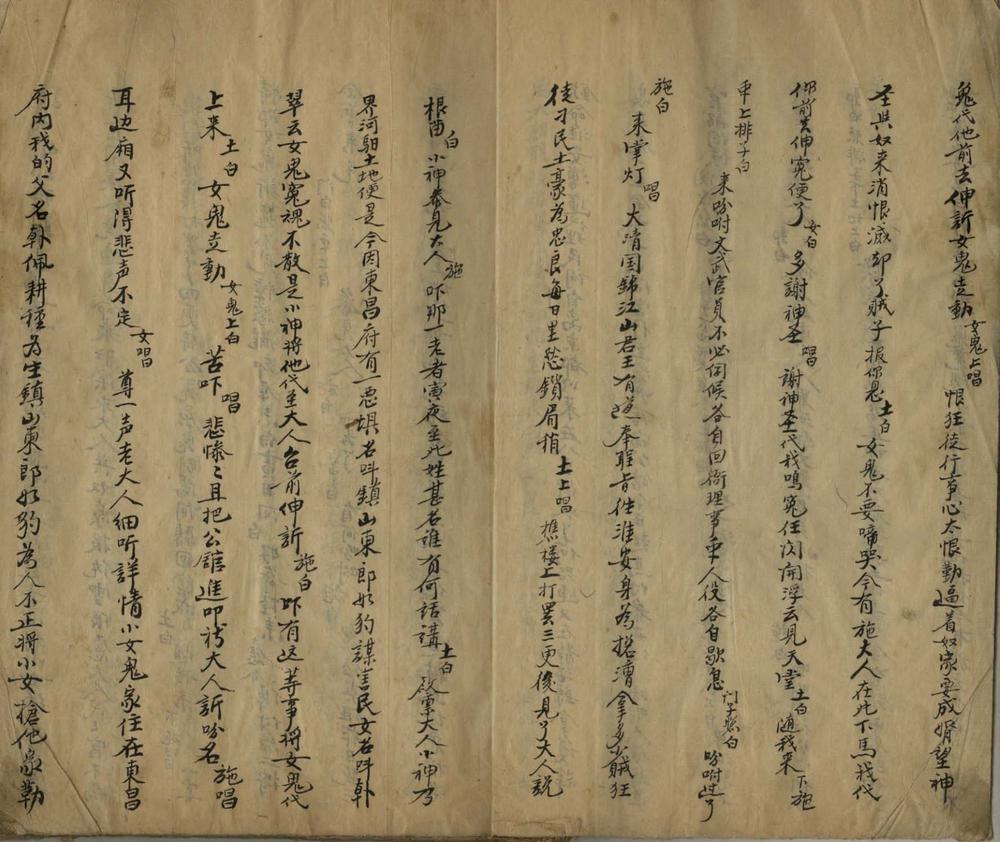 鬼代他前去伸訴女鬼走動女鬼上唱恨狂徒行事心太恨勒逼着奴家要成婚望神
圣與奴来消恨滅却了賊子报你恩土白女鬼不要啼哭今有施大人在此下馬我代
你前去伸冤便了女白多謝神圣唱謝神圣代我鳴冤任闵開浮云見天堂土白随我来下施
中上排子白来吩咐文武官員不必伺候各自回衙理事手人役各自歇息门子照白吩咐过了
施白来掌灯唱大清国錦江山君王有道奉聖旨往淮安身為捴漕拿多少賊狂
徒刁民土豪為忠良每日里愁鎖眉梢土上唱樵楼上打罢三更後見了大人説
根由白小神叅見大人施吓那一老者寅夜至此姓甚名誰有何話講土白啟禀大人小神乃
界河馹土地便是今因東昌府有一恶棍名呌鎮山東郎如豹謀害民女名呌韩
翠云女鬼冤魂不散是小神将他代至大人台前伸訴施白吓有这等事将女鬼代
上来土白女鬼走動女鬼上白苦吓唱悲惨々且把公舘進叩祷大人訴吩名施唱
耳边廂又听得悲声不定女唱尊一声老大人細听詳情小女鬼家住在東昌
府内我的父名韩佩耕種为生鎮山東郎如豹為人不正将小女搶他家勒